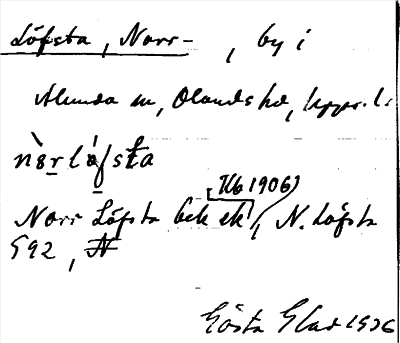 Löfsta, Norr-, by i
Alunda sn, Olands hd, Upps. l.
nòrlǿfsta
Norr Löfsta bek ek (Ub 1906), N. Löfsta
592, N
Gösta Glad 1926